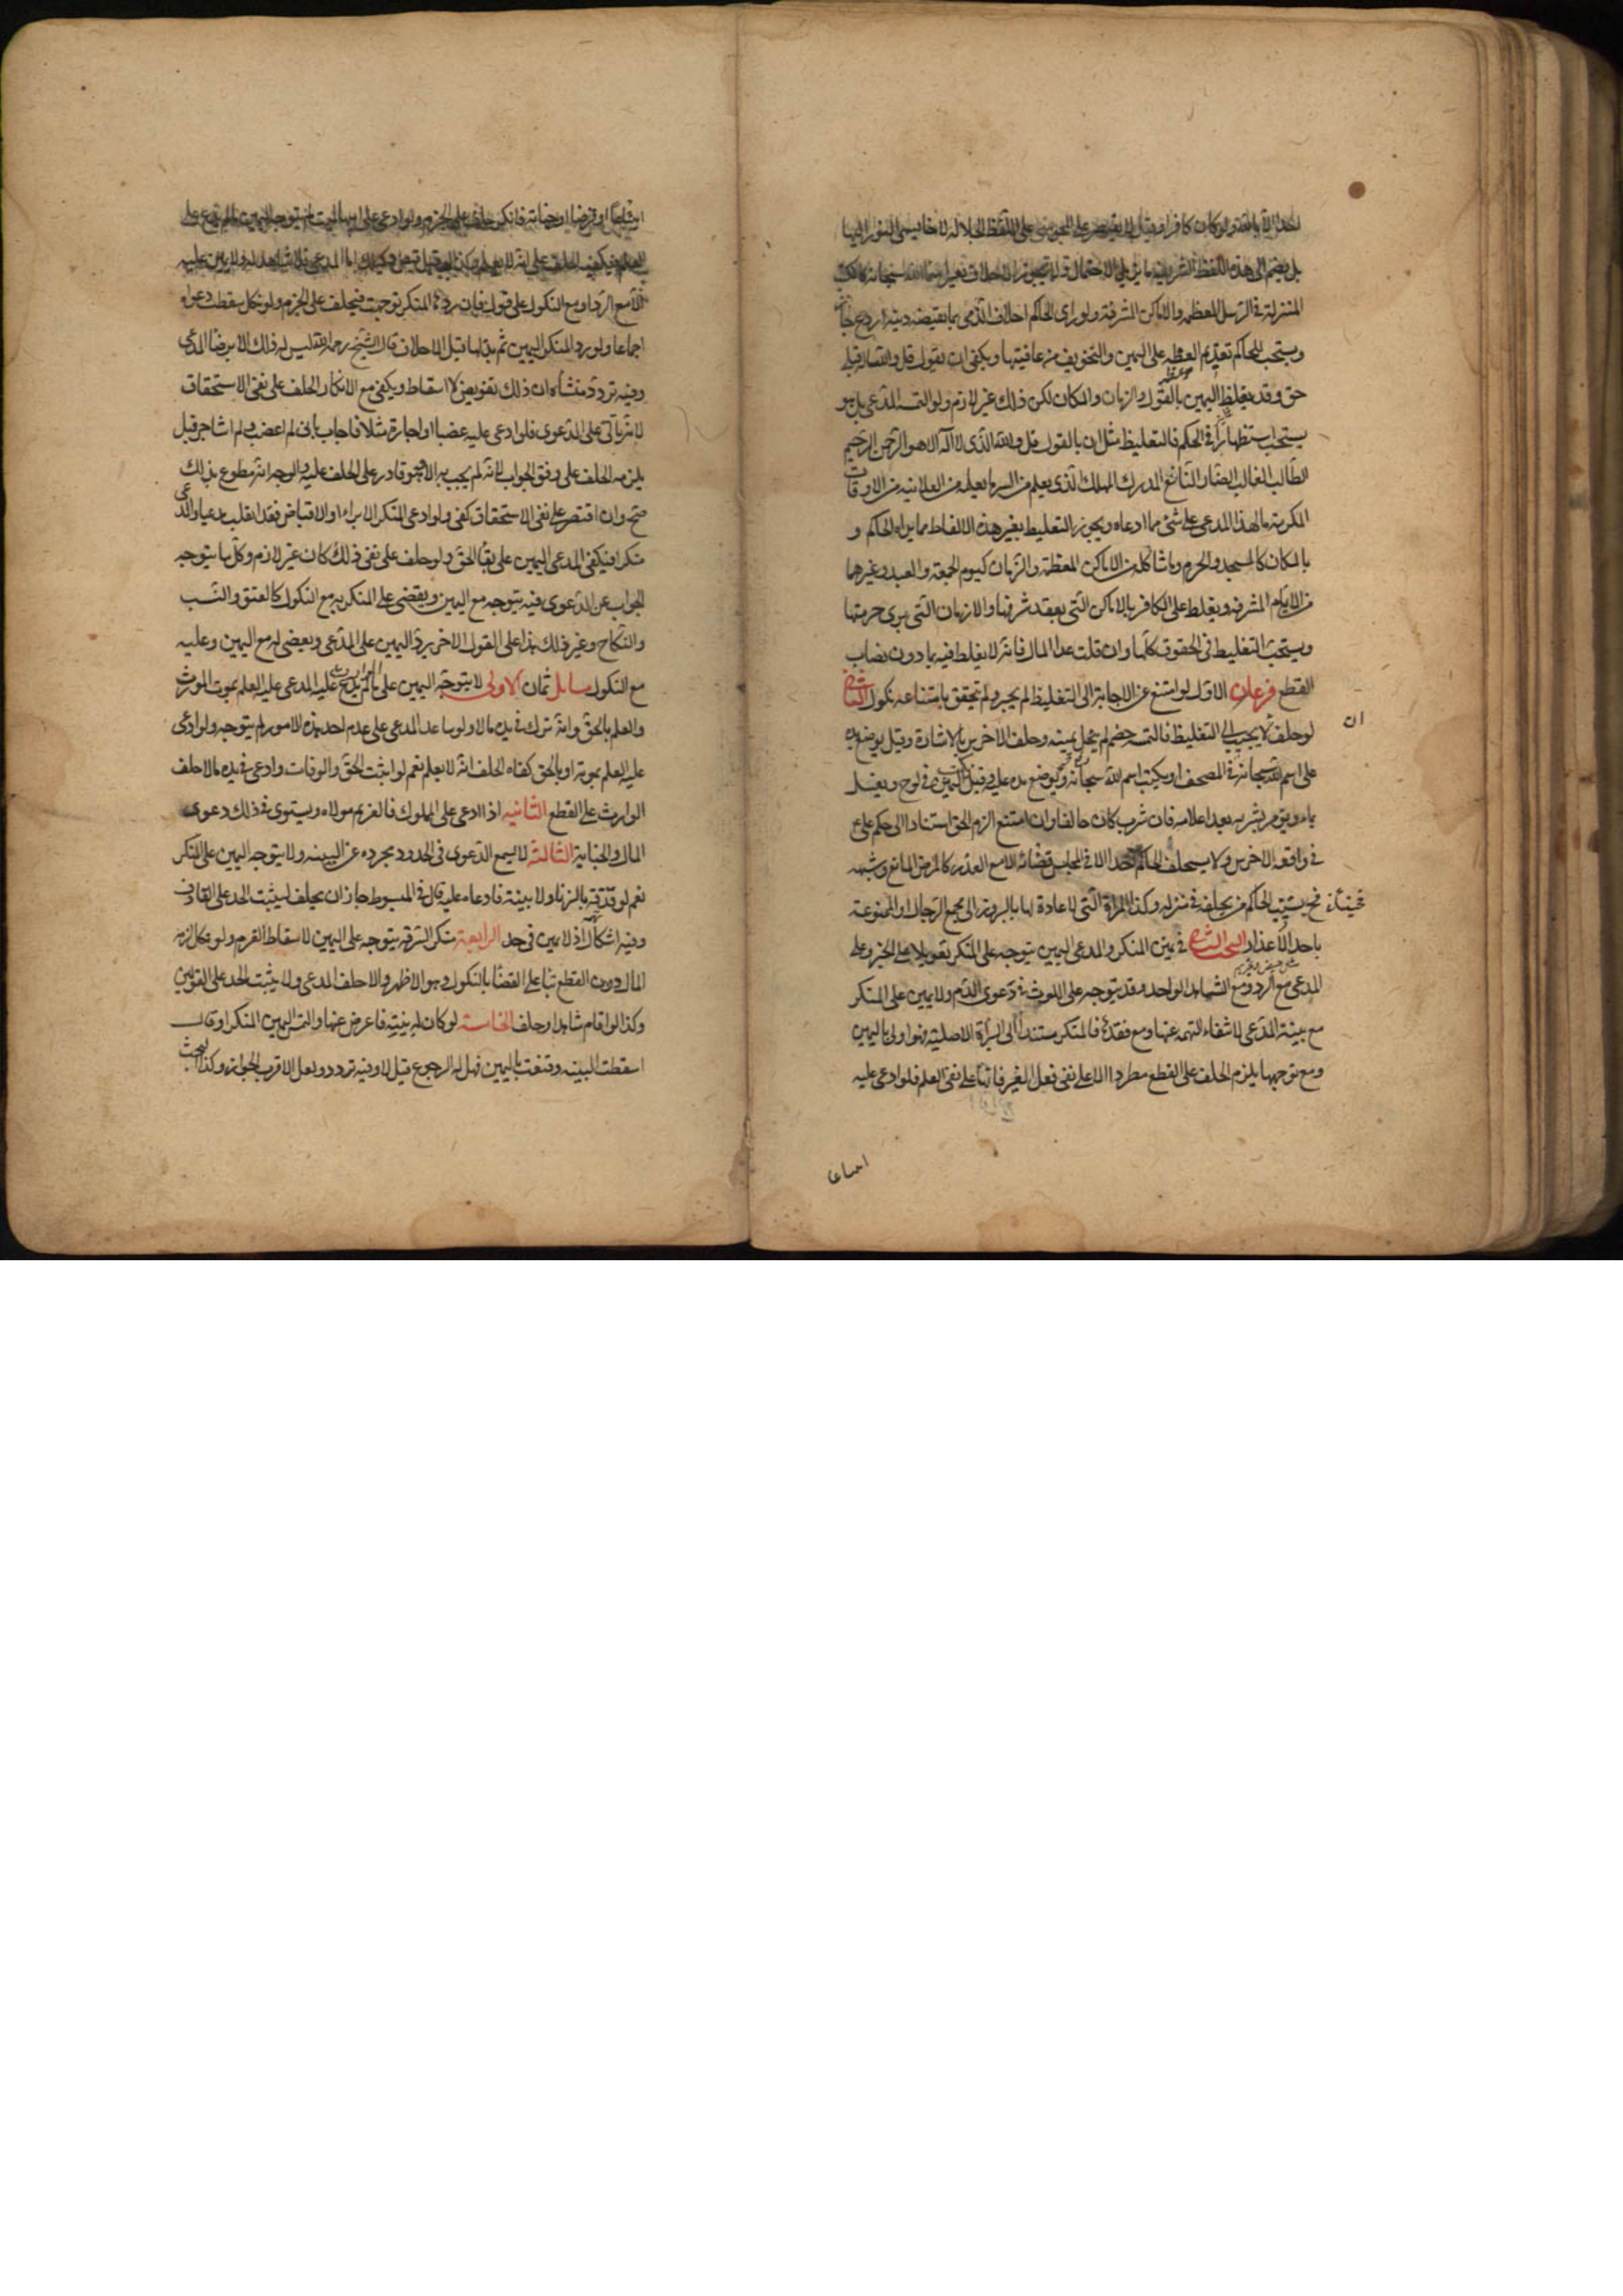 احدا الا بالله ولو كان كافرا وقيل لا يقتصر على المجوسي على اللفظ الجلاله لانه يسمي النور الها
بل يضم الى هذه اللفظ الشريفه ما يزيل الاحتمال ولا يجوز الاحلاف بغير اسماء الله سبحانه كالكتب
المنزلة و الرسل المعظمه والاماكن المشرفة ولو راى الحاكم احلاف الذمي بما يقتضيه دينه اردع جاز
ويستحب للحاكم تقديم العظه على اليمين والتخويف من عاقبتها ويكفي ان يقول قل والله ما له قبلي
حق وقد يغلظ اليمين بالقول والزمان والمكان لكن ذلك غير لازم ولو التمسه المدعى بل هو
يستحب استظهارا في الحكم فالتغليظ مثل ان بالقول قل والله الذى لا اله الا هو الرحمن الرحيم
الطالب الغالب الضار النافع المدرك المهلك الذى يعلم من السر ما يعلمه من العلانيه من الاوقات
ما لهذا المدعى على شئ مما ادعاه ويجوز التغليظ بغير هذه الالفاظ مما يراه الحاكم و
بالمكان كالمسجد والحرم وما شاكله من الاماكن المعظمة والزمان كيوم الجمعة والعيد وغيرهما
من الايام المشرفه ويغلظ على الكافر بالاماكن التى يعتقد شرفها والازمان التى يرى حرمتها
ويستحب التغليظ فى الحقوق كلها وان قلت عدا المال فانه لا يغلظ فيه بما دون نصاب
القطع فرعان الاول لو امتنع عن الاجابة الى التغليظ لم يجبر ولم تحقق بامتناعه نكول الثانى
ان
لو حلف لا يجيب الى التغليظ فالتمسه خصمه لم ينحل يمينه وحلف الاخرس بالاشارة وقيل يوضع يده
على اسم الله سبحانه في المصحف او يكتب اسم الله سبحانه ويوضع يده عليه وقيل يكتب اليمين فى لوح ويغسل
بماء ويؤمر بشربه بعد اعلامه فان شرب كان حالفا وان امتنع الزم الحق استنادا الى حكم على ع
فى واقعة الاخرس ولا يستحلف الحاكم احدا الا فى مجلس قضائه الا مع العذر كالمرض المانع وشبهه
فحينئذ يستنيب الحاكم من يحلفه فى منزله وكذا المراة التى لا عادة لها بالبروز الى مجمع الرجال او الممنوعة
باحد الاعذار البحث الثانى فى يمين المنكر والمدعى اليمين يتوجه على المنكر تعويلا على الخبر وعلى
المدعى مع الرد ومع الشاهد الواحد وقد يتوجه على اللوث فى دعوى الدم ولا يمين على المنكر
مع بينة المدعى لانتفاء التهمة عنها ومع فقدها فالمنكر مستند الى البراة الاصلية فهو اولى باليمين
ومع توجهها يلزم الحلف على القطع مطردا الا على نفى فعل الغير فانها على نفى العلم فلو ادعى عليه
اجماعا
ابتياعا او قرضا او جناية فانكر حلف على الجزم ولو ادعى على ابيه الميت لم يتوجه اليمين ما لم يدع عليه
العلم فيكفيه الحلف على انه لا يعلم وكذا لو قيل قبض وكيلك اما المدعى ولا شاهد له ولا يمين عليه
الا مع الرد او مع النكول على قول فان ردها المنكر توجهت فيحلف على الجزم ولو نكل سقطت دعواه
اجماعا ولو رد المنكر اليمين ثم بذلها قبل الاحلاف قال الشيخ رحمه الله ليس له ذلك الا برضا المدعى
وفيه تردد منشاه ان ذلك تفويض لا اسقاط ويكفى مع الانكار الحلف على نفى الاستحقاق
لانه ياتى على الدعوى فلو ادعى عليه غصبا او اجارة مثلا فاجاب بانى لم اغصب ولم استاجر قيل
يلزمه الحلف على وفق الجواب لانه لم يجب به الا وهو قادر على الحلف عليه والوجه انه ان تطوع بذلك
صح وان اقتصر على نفى الاستحقاق كفى ولو ادعى المنكر الابراء او الاقباض فقد انقلب مدعيا والمدعى
منكرا فيكفى المدعى اليمين على بقاء الحق ولو حلف على نفى ذلك كان غير لازم وكل ما يتوجه
الجواب عن الدعوى فيه يتوجه معه اليمين ويقضى على المنكر به مع النكول كالعتق والنسب
والنكاح وغير ذلك هذا على القول الاخر يرد اليمين على المدعى ويقضى له مع اليمين وعليه
مع النكول مسايل ثمان الاولى لا يتوجه اليمين على الوارث ما لم يدع عليه المدعى عليه العلم بموت المورث
والعلم بالحق وانه ترك فى يده مالا ولو ساعد المدعى على عدم احد هذه الامور لم يتوجه ولو ادعى
عليه العلم بموته او بالحق كفاه الحلف انه لا يعلم نعم لو اثبت الحق والوفات وادعى فى يده مالا حلف
الوارث على القطع الثانيه اذا ادعى على المملوك فالغريم مولاه ويستوى فى ذلك دعوى
المال والجناية الثالثة لا يسمع الدعوى فى الحدود مجرده عن البينه ولا يتوجه اليمين على المنكر
نعم لو قذفه بالزنا ولا بينة فادعاه عليه قال فى المبسوط جاز ان يحلف ليثبت الحد على القاذف
وفيه اشكال اذ لا يمين فى حد الرابعة منكر السرقه يتوجه على اليمين لاسقاط الغرم ولو نكل لزمه
المال دون القطع بناء على القضاء بالنكول وهو الاظهر والا حلف المدعى ولا يثبت الحد على القولين
وكذا لو اقام شاهدا وحلف الخامسة لو كان له بينة فاعرض عنها والتمس اليمين المنكر او قال
اسقطت البينه وقنعت باليمين فهل له الرجوع قيل لا وفيه تردد ولعل الاقرب الجواز وكذا البحث